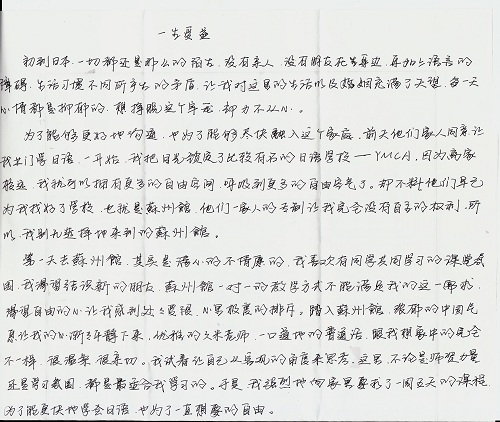 一生受益
初到日本,一切都还是那么的陌生,没有亲人,没有朋友在生身边,再加上语言的
障碍,生活习惯不同所产生的矛盾,让我对这里的生活以及婚姻充满了失望,每一天
心情都是抑郁的,想摆脱这个牢笼,却力不从心。
为了能够更好地沟通,也为了能够尽快融入这个家庭,前天他们家人同意让
我出门学日语。一开始,我把目光锁定了比较有名的日语学校——YMCA,因为离家
较远,我就可以拥有更多的自由空间,呼吸到更多的自由空气了。却不料他们早已
为我找好了学校,也就是蘇州館,他们一家人的专制让我完全没有自己的权利,所
以,我别无选择地来到的蘇州館。
第一天去蘇州館,其实是满心的不情愿的,我喜欢有同学共同学习的课堂氛
围,我渴望结识新的朋友,蘇州館一对一的教学方式不能满足我的这一需求,
渴望自由的心让我感到处处受限,心里极度的排斥。踏入蘇州館,浓郁的中国气
息让我的心渐渐平静下来,优雅的久米老师,一口道地的普通话,跟我想象中的完全
不一样,很温柔,很亲切。我试着让自己从客观的角度来思考,这里,不论是师资力量
还是学习氛围,都是最适合我学习的。于是,我强烈地向家里要求了一周五天的课程,
为了能更快地学会日语,也为了一直想要的自由。